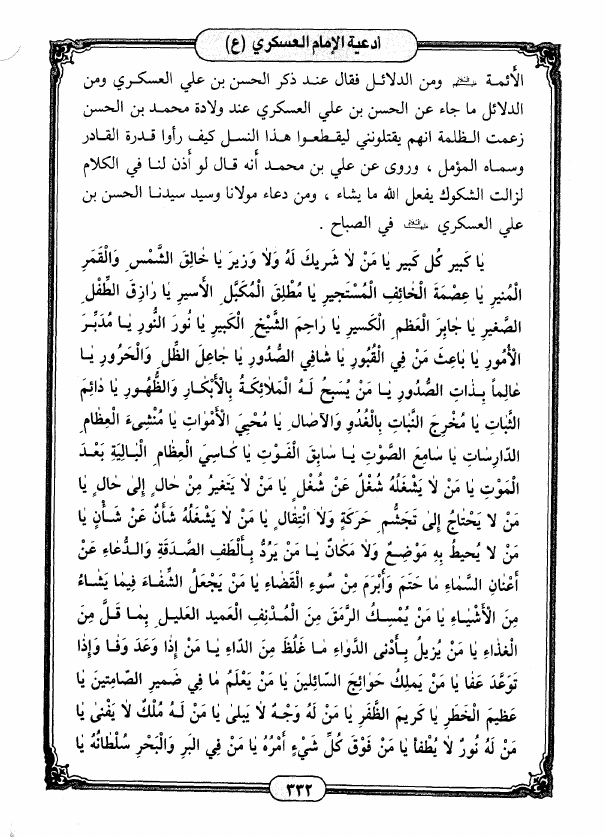 أدعية الإمام العسكري (ع)
الأئمة ومن الدلائل فقال عند ذكر الحسن بن علي العسكري ومن
الدلائل ما جاء عن الحسن بن علي العسكري عند ولادة محمد بن الحسن
زعمت الظلمة انهم يقتلونني ليقطعوا هذا النسل كيف رأوا قدرة القادر
وسماه المؤمل ، وروى عن علي بن محمد أنه قال لو أذن لنا في الكلام
لزالت الشكوك يفعل الله ما يشاء ، ومن دعاء مولانا وسيد سيدنا الحسن بن
علي العسكري في الصباح .
يا كَبير كُل كَبير يا مَنْ لا شَريكَ لَهُ وَلا وَزيرَ يا خالِقَ الشَّمْسِ وَالْقَمَرِ
الْمُنيرِ يا عِصْمَةَ الْخائِفِ الْمُسْتَجيرِ يا مُطْلِقَ الْمُكَبَّلِ الأَسيرِ يا رازِقَ الطِّفْلِ
الصَّغيرِ يا جابِرَ الْعَظْمِ الْكَسيرِ يا راحِمَ الشَّيْخِ الْكَبيرِ يا نُورَ النُّورِ يا مُدَبِّرَ
الأُمُورِ يا باعِثَ مَنْ فِي الْقُبُورِ يا شافِي الصُّدُورِ يا جاعِلَ الظِّلِ وَالْحَرُورِ يا
عالِماً بِذاتِ الصُّدُورِ يا مَنْ يُسَبِحُ لَهُ الْمَلائِكَةُ بِالأَبْكارِ وَالظُّهُورِ يا دائِمَ
الثَّباتِ يا مُخْرِجَ النَّباتِ بِالْغُدُوِ وَالآصالِ يا مُحْيِيَ الأَمْواتِ يا مُنْشِىءَ الْعِظامِ
الدّارِساتِ يا سامِعَ الصَّوْتِ يا سابِقَ الْفَوْتِ يا كاسِيَ الْعِظامِ الْبالِيَةِ بَعْدَ
الْمَوْتِ يا مَنْ لا يَشْغَلُهُ شُغْلٌ عَنْ شُغْلٍ يا مَنْ لا يَتَغيرُ مِنْ حالٍ إِلى حالٍ يا
مَنْ لا يَحْتاجُ إِلى تَجَشُّمِ حَرَكَةٍ وَلا انْتِقالٍ يا مَنْ لا يَشْغَلُهُ شَأنٌ عَنْ شَأْنٍ يا
مَنْ لا يُحيطُ بِهِ مَوْضِعٌ وَلا مَكانٌ يا مَنْ يَرُدُّ بِأَلْطَفِ الصَّدَقَةِ وَالدُّعاءِ عَنْ
أَعْنانِ السَّماءِ ما حَتَمَ وَأَبْرَمَ مِنْ سُوءِ الْقَضاءِ يا مَنْ يَجْعَلُ الشِّفاءَ فيما يَشاءُ
مِنَ الأَشْياءِ يا مَنْ يُمْسِكُ الرَّمَقَ مِنَ الْمُدْنِفِ الْعَميد العَليلِ بِما قَلَّ مِنَ
الْغذاءِ يا مَنْ يُزيلُ بِأَدْنى الدَّواءِ ما غَلُظَ مِنَ الدّاءِ يا مَنْ إِذا وَعَدَ وَفا وَإِذا
تَوَعَّدَ عَفا يا مَنْ يَملِكُ حَوائِجَ السّائِلينَ يا مَنْ يَعْلَمُ ما في ضَميرِ الصّامِتينَ يا
عَظيمَ الْخَطَرِ يا كَريمَ الظَّفَرِ يا مَنْ لَهُ وَجْهٌ لا يَبلى يا مَنْ لَهُ مُلْكٌ لا يَفْنى يا
مَنْ لَهُ نُورٌ لا يُطْفأ يا مَنْ فَوْقَ كُلِّ شَيْءٍ أَمْرُهُ يا مَنْ فِي الْبَرِ وَالْبَحْرِ سُلْطانُهُ يا
٣٣٢